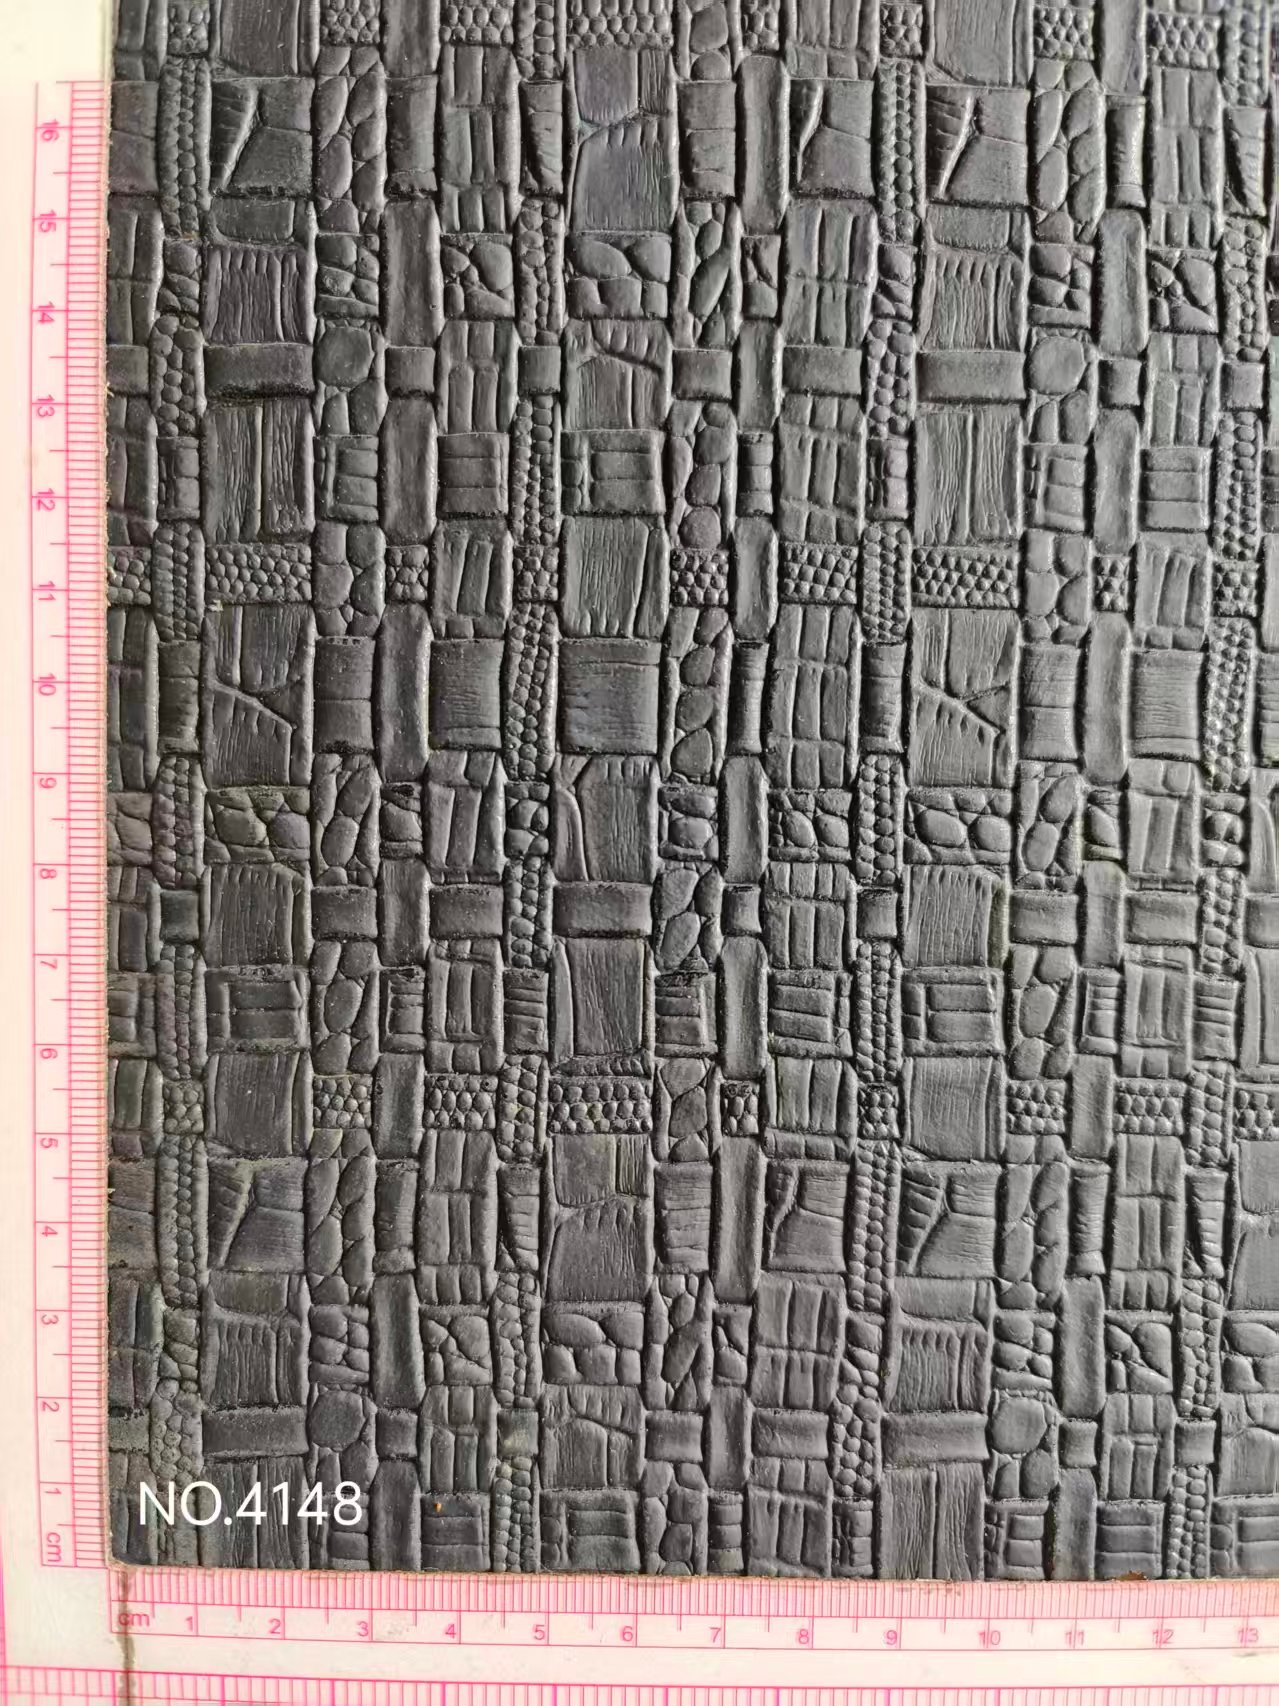 16
15
14
13
12
11
10
9
8
7
6
5
4
3
2
1
cm
NO.4148
cm 1 2 3 4 5 6 7 8 9 10 11 12 13